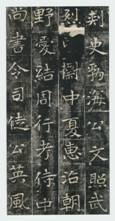 刺史勃海公文照武
烈闡中夏惠治朝
野愛結周行考侍中
尚書令司徒公英風